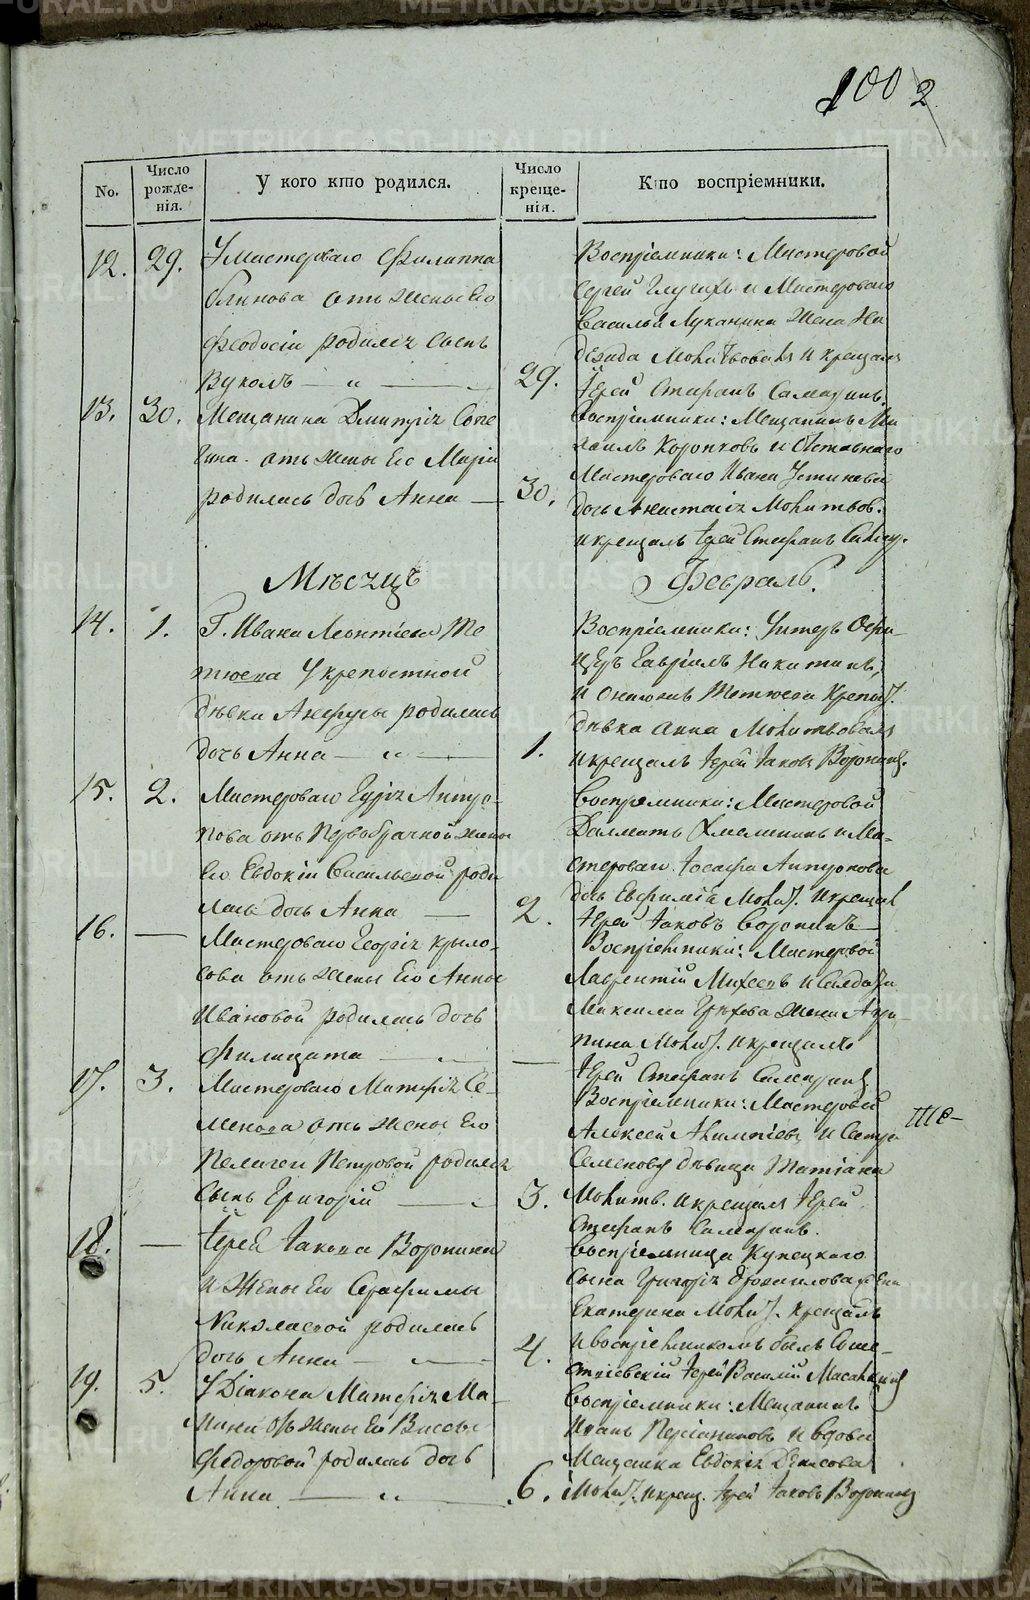 1002
No.
Число рожде-нія.
У кого кто родился.
Число креще-нія.
Кто воспріемники.
12. 29. У мастероваго Филиппа
Блинова отъ жены Его
Феодосіи родился сынъ
Вуколъ — „ —
29.
Воспріемники: Мастеровой
Сергей и Мастероваго
Василья Луканина жена На
дежда Молитвовалъ и крещалъ
Іерей Стефанъ
13. 30. Мещанина Дмитрія
отъ жены Его Маріи
родилась дочь Анна —
30.
Воспріемники: Мещанинъ Ми
хаилъ Коротковъ и Отставнаго
Мастероваго Ивана Устинова
дочь Анастасія Молитвов.
и крещалъ Іерей Стефанъ
Мѣсяцъ
Февраль.
14. 1. Г. Ивана Леонтіева Те
тюева У крепостной
дѣвки Анфусы родилась
дочь Анна — „ —
1.
Воспріемники: Унтеръ Офи-
церъ Гавріилъ Никитинъ,
и Тетюева Крепос.
дѣвка Анна Молитвовалъ
и крещалъ Іерей Іаковъ Воронинъ.
15. 2. Мастероваго Гурія Антро-
пова отъ Первобрачной жены
Его Евдокіи Васильевой роди
лась дочь Анна —
2.
Воспріемники: Мастеровой
Далматъ и Ма-
стероваго Іоасафа Антропова
дочь Евфимія Молит. и крещал
Іерей Іаковъ Воронинъ —
16. — Мастероваго Георгія Крыло-
сова отъ жены Его Анны
Ивановой родилась дочь
Филицата —
—
Воспріемники: Мастеровой
Лаврентій Михеевъ и Солдата
Максима жена Агри-
пина Молит. и крещалъ
Іерей Стефанъ
17. 3. Мастероваго Матфія Се-
менова отъ жены Его
Пелагеи Петровой родился
сынъ Григорій —
3.
Воспріемники: Мастеровой
Алексей и Сестра
Семенова дѣвица Татіана
Молитв. и крещалъ Іерей
Стефанъ
18. — Іерей Іакова Воронина
и Жены Его Серафимы
Николаевой родилась
дочь Анна —
4.
Воспріемница Купецкаго
сына Григорія жена
Екатерина Молит. крещалъ
и воспріемникомъ былъ
Іерей Василій
19. 5. У Діакона Матфія Ма-
отъ жены Его Вассы
Федоровой родилась дочь
Анна — „ —
6.
Воспріемники: Мещанинъ
Иванъ и вдова
Мещанка Евдокія Денисова
Молит. и крещ. Іерей Іаковъ Воронинъ
METRIKI.GASO-URAL.RU